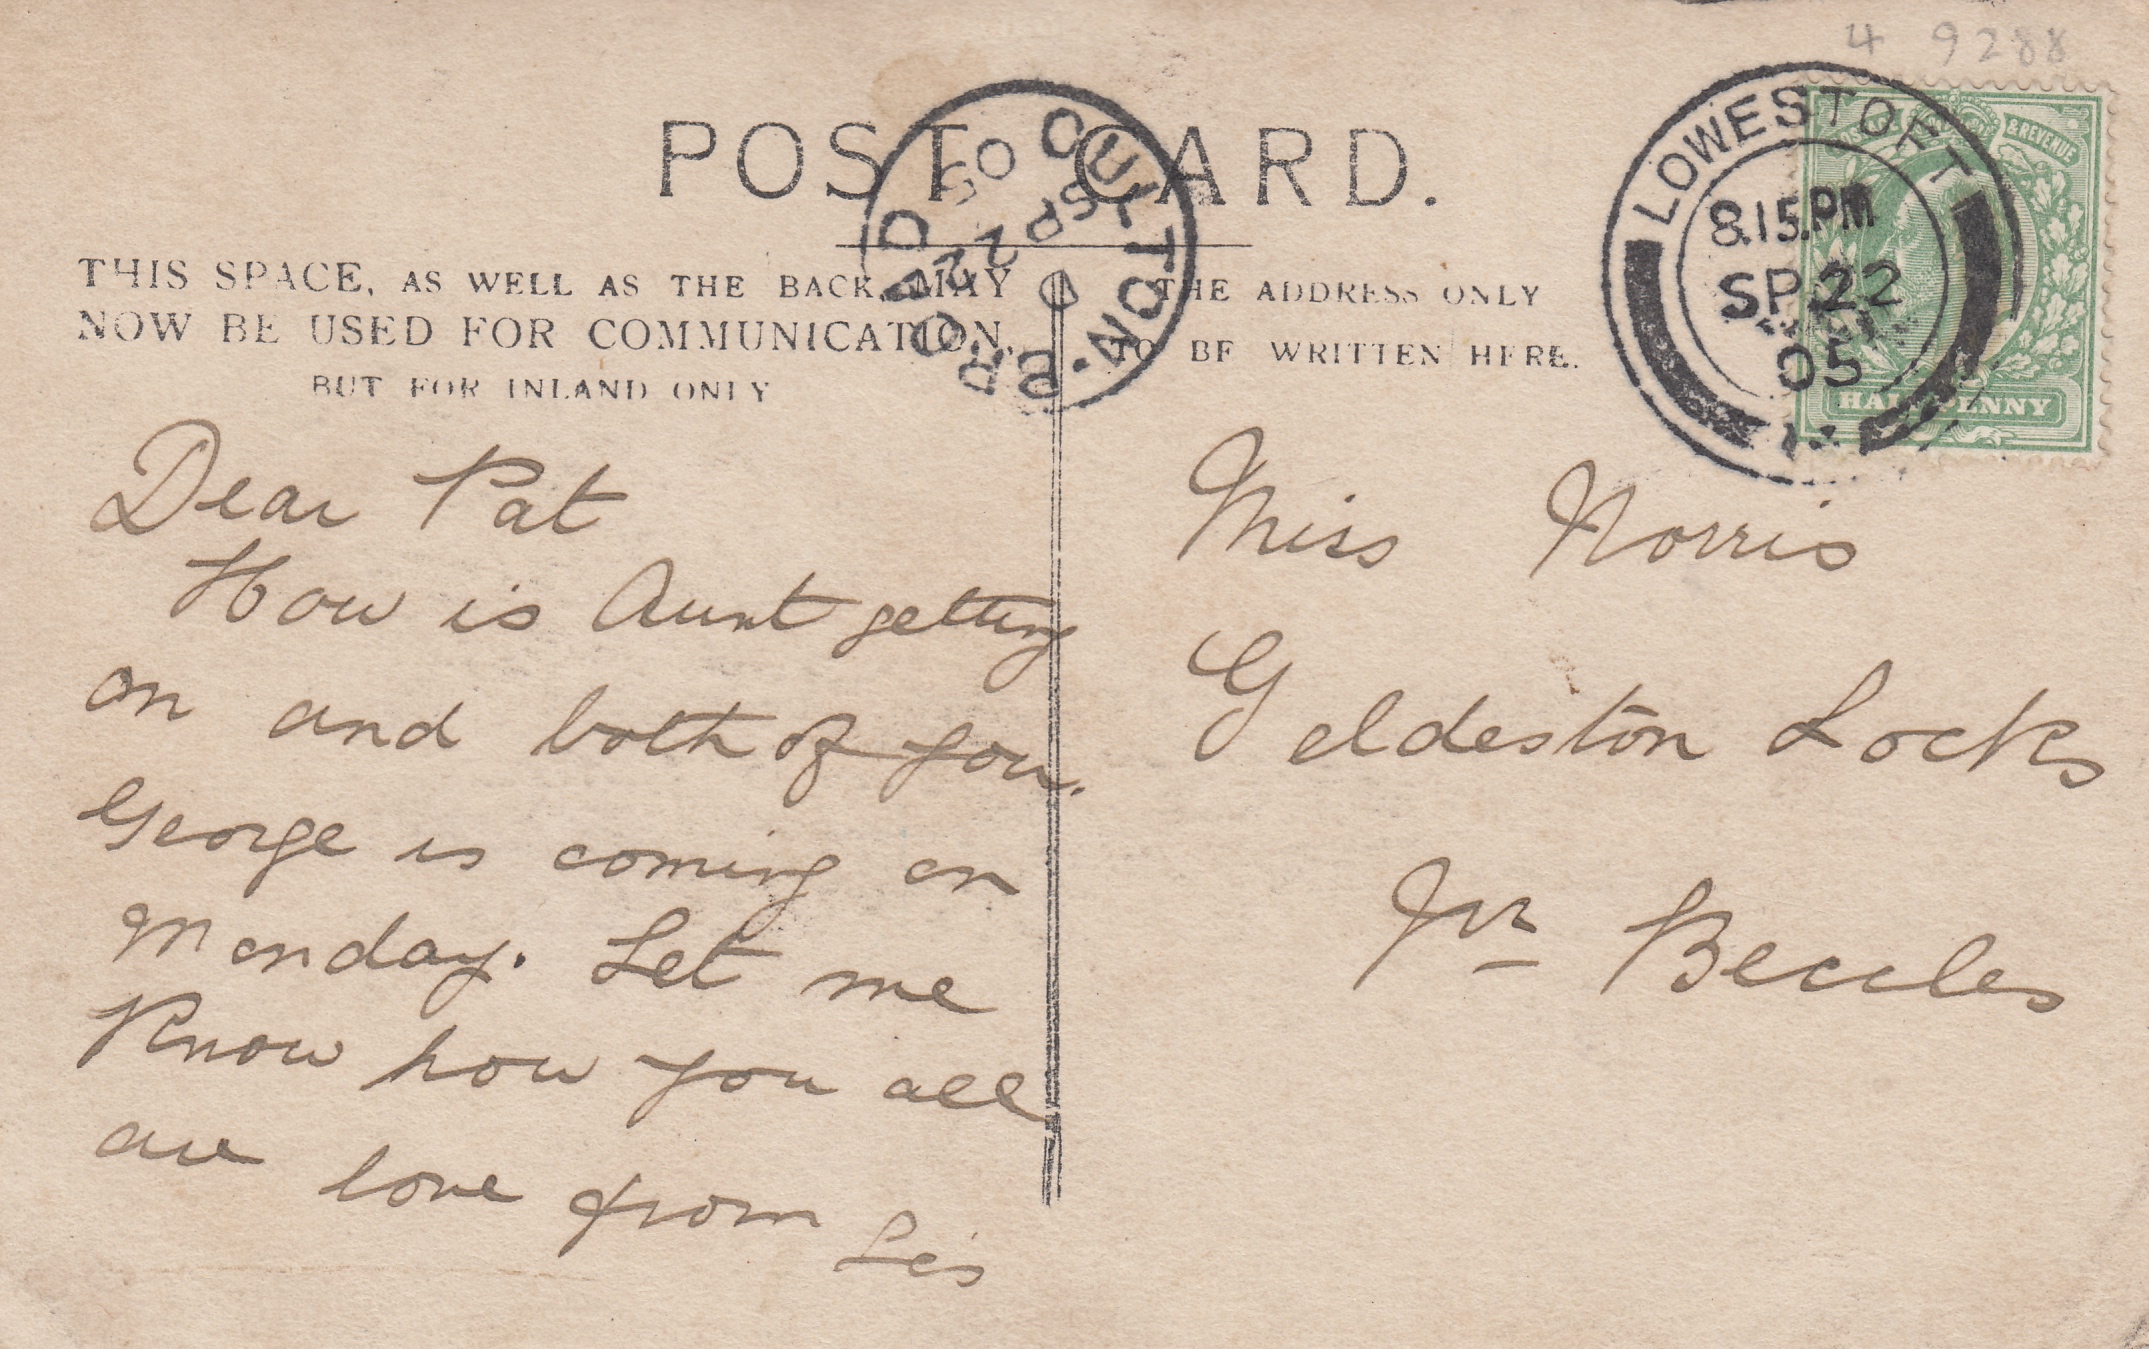 4 9288
POST CARD.
THIS SPACE, AS WELL AS THE BACK, MAY
NOW BE USED FOR COMMUNICATION,
BUT FOR INLAND ONLY
THE ADDRESS ONLY
TO BE WRITTEN HERE.
OULTON. BROAD
D
SP 22
05
LOWESTOFT
8.15.PM
SP 22
05
POSTAGE & REVENUE
HALFPENNY
Dear Pat
How is Aunt getting
on and both of you.
George is coming on
Monday. Let me
Know how you all
are love from
Miss Norris
Geldeston Locks
Nr Beccles